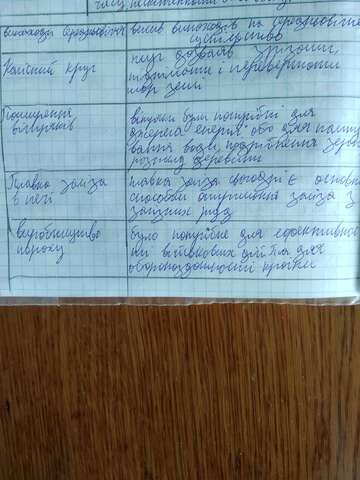 винаходи середньовіччя вплив винаходів на середньовічне
суспільство
Колісний плуг
плуг дозволяв
і перевертати
шар землі
Поширення
вітряків
вітряки були потрібні для
джерела енергії або для
води, подрібнення зерна
розпилу деревини
Плавка заліза
в печі
плавка заліза сьогодні є основн
способом отримання заліза з
залізних руд
виробництво
пороху
було потрібне для ефективно
військових дій та для
обороноздатності країни